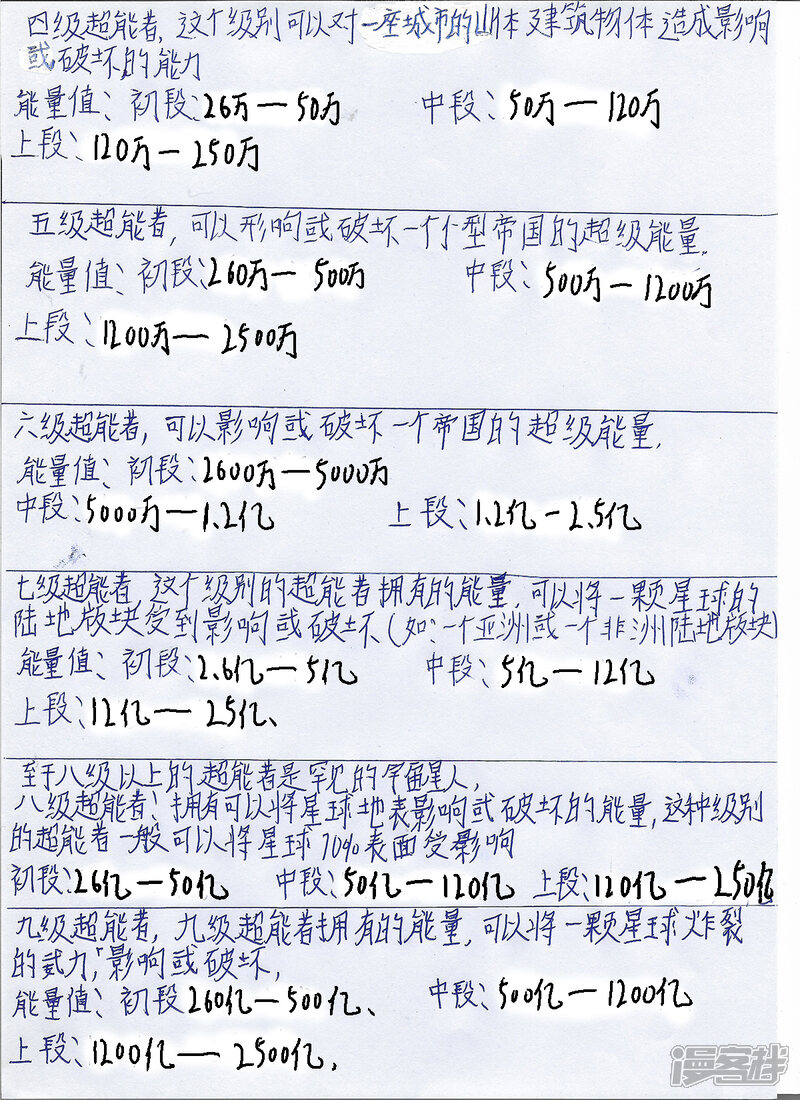 四级超能者,这个级别可以对一座城市的山体建筑物体造成影响
或破坏的能力
能量值: 初段:26万—50万 中段:50万—120万
上段:120万—250万
五级超能者,可以形响或破坏一个小型帝国的超级能量.
能量值: 初段:260万—500万 中段:500万—1200万
上段:1200万—2500万
六级超能者,可以影响或破坏一个帝国的超级能量.
能量值: 初段:2600万—5000万
中段:5000万—1.2亿 上段:1.2亿-2.5亿
七级超能者,这个级别的超能者拥有的能量,可以将一颗星球的
陆地版块受到影响或破坏(如:一个亚洲或一个非洲陆地版块)
能量值: 初段:2.6亿—5亿 中段:5亿—12亿
上段:12亿—25亿、
至于八级以上的超能者是罕见的宇宙星人,
八级超能者:拥有可以将星球地表影响或破坏的能量,这种级别
的超能者一般可以将星球70%表面受影响
初段:26亿—50亿 中段:50亿—120亿 上段:120亿—250亿
九级超能者,九级超能者拥有的能量,可以将一颗星球炸裂
的武力,影响或破坏,
能量值: 初段260亿—500亿、 中段:500亿—1200亿
上段:1200亿—2500亿,
漫客栈